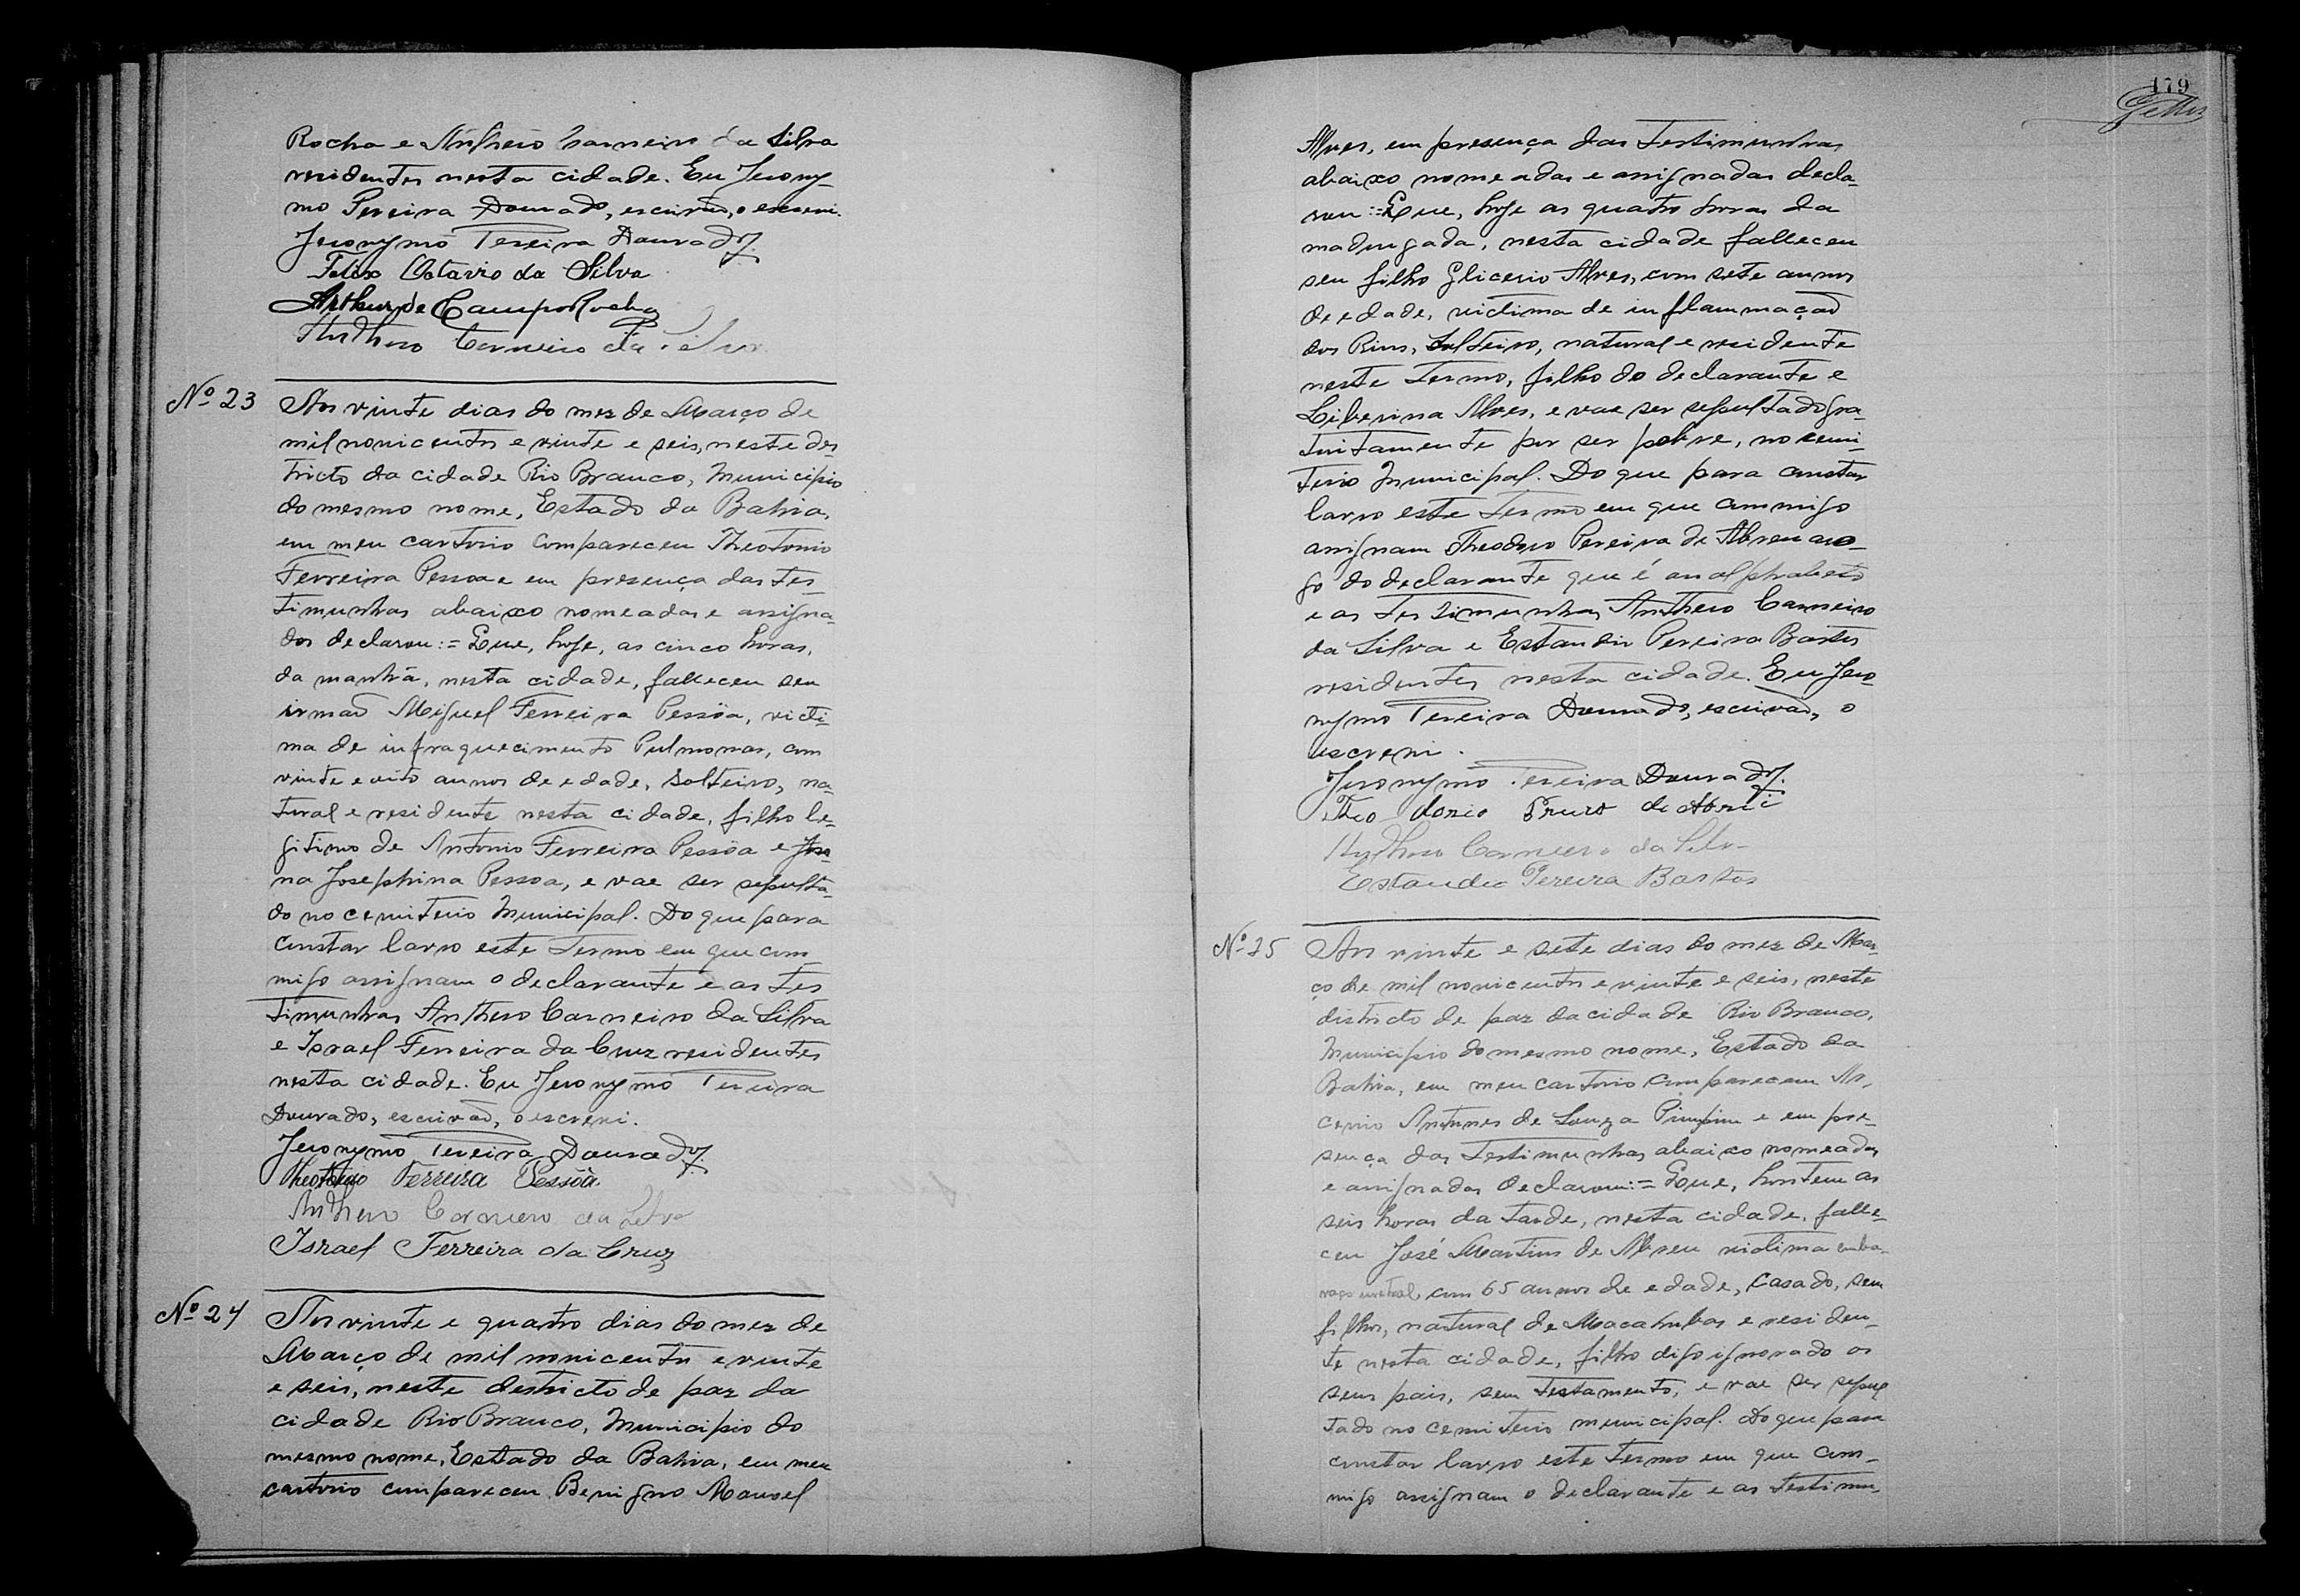 Rocha e Anthero Carneiro da Silva
residentes nesta cidade. Eu Jerony-
mo Pereira Dourado, escrivão, o escrevi.
Jeronymo Pereira Dourado
Felix Octavio da Silva
Arthur de Campos Rocha
Anthero Carneiro da Silva
Nº 23
Aos vinte dias do mez de Março de
mil novicentos e vinte e seis, neste des-
tricto da cidade Rio Branco, Municipio
do mesmo nome, Estado da Bahia,
em meu cartorio compareceu Theotonio
Ferreira Pessoa e em presença das tes-
timunhas abaixo nomeadas e assigna-
das declarou:= Que, hoje, as cinco horas,
da manhã, nesta cidade, falleceu seu
irmaõ Miguel Ferreira Pessôa, victi-
ma de infraquecimento Pulmonar, com
vinte e oito annos de edade, solteiro, na-
tural e residente nesta cidade, filho le-
gitimo de Antonio Ferreira Pessôa e
na Josephina Pessoa, e vae ser sepulta-
do no cemiterio Municipal. Do que para
constar lavro este termo em que com-
migo assignam o declarante e as tes
timunhas Anthero Carneiro da Silva
e Israel Ferreira da Cruz residentes
nesta cidade. Eu Jeronymo Pereira
Dourado, escrivaõ, o escrevi.
Jeronymo Pereira Dourado
Theotonio Ferreira Pessôa.
Anthero Carneiro da Silva
Israel Ferreira da Cruz
Nº 24
Aos vinte e quatro dias do mez de
Março de mil novicentos e vinte
e seis, neste destricto de paz da
cidade Rio Branco, Municipio do
mesmo nome, Estado da Bahia, em meu
cartorio compareceu Benigno Manoel
179
Alves, em presença das Testimunhas
abaixo nomeadas e assignadas decla-
rou:= Que, hoje as quatro horas da
madrugada, nesta cidade falleceu
seu filho Glicerio Alves, com sete annos
de edade, victima de inflammaçaõ
dos Rins, Solteiro, natural e residente
neste Termo, filho do declarante e
Liberina Alves, e vae ser sepultado gra-
tuitamente por ser pobre, no cemi-
terio Municipal. Do que para constar
lavro este Termo em que commigo
assignam Theodoro Pereira de Abreu a ro-
go do declarante que é analphabeto
e as testimunhas Anthero Carneiro
da Silva e Estandir Pereira Bastos
residentes nesta cidade. Eu Jero-
nymo Pereira Dourado, escrivaõ, o
escrevi.
Jeronymo Pereira Dourado
de Abreu
Anthero Carneiro da Silva
Pereira Bastos
Nº 25
Aos vinte e sete dias do mez de Mar-
ço de mil novicentos e vinte e seis, neste
districto de paz da cidade Rio Branco,
Municipio do mesmo nome, Estado da
Bahia, em meu cartorio compareceu Ar-
cenio Antunes de Souza e em pre-
sença das Testimunhas abaixo nomeadas
e assignadas declarou:= Que, hontem as
seis horas da tarde, nesta cidade, falle-
ceu José Martins de Abreu victima emba-
raço com 65 annos de edade, casado, sem
filhos, natural de Macahubas e residen-
te nesta cidade, filho digo ignorado os
seus pais, sem Testamento, e vae ser sepul
tado no cemiterio municipal. Do que para
constar lavro este Termo em que com-
migo assignam o declarante e as testimu-